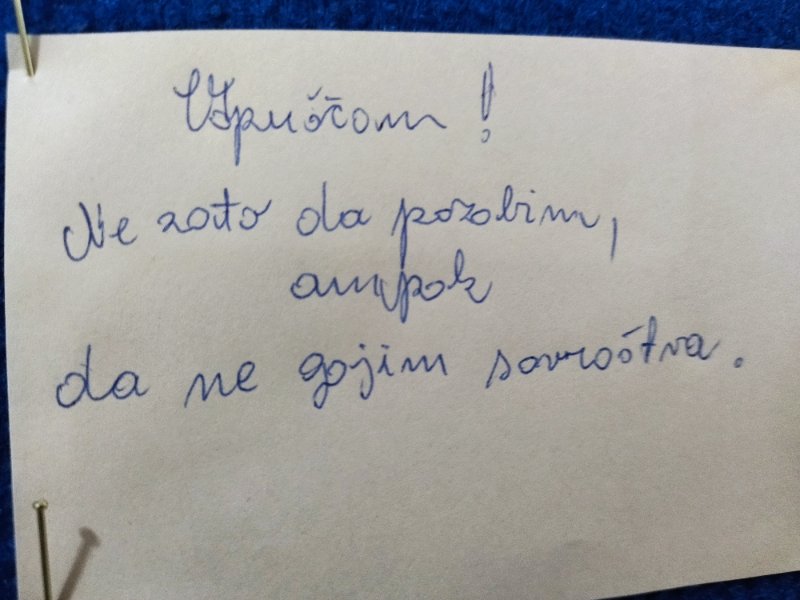 Odpuščam!
Ne zato da pozabim,
ampak
da ne gojim sovraštva.